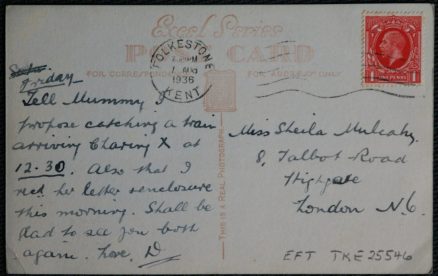 Excel Series
POST CARD
FOR CORRESPONDENCE
FOR ADDRESS ONLY
FOLKESTONE
1936
KENT
THIS IS A REAL PHOTOGRAPH
Friday
Tell Mummy I
propose catching a train
arriving Charing X at
12.30. Also that I
recd her letter & enclosure
this morning. Shall be
glad to see you both
again. Love, D
Miss Sheila Mulcahy
8, Talbot Road
Highgate
London N.6.
EFT TKE25546